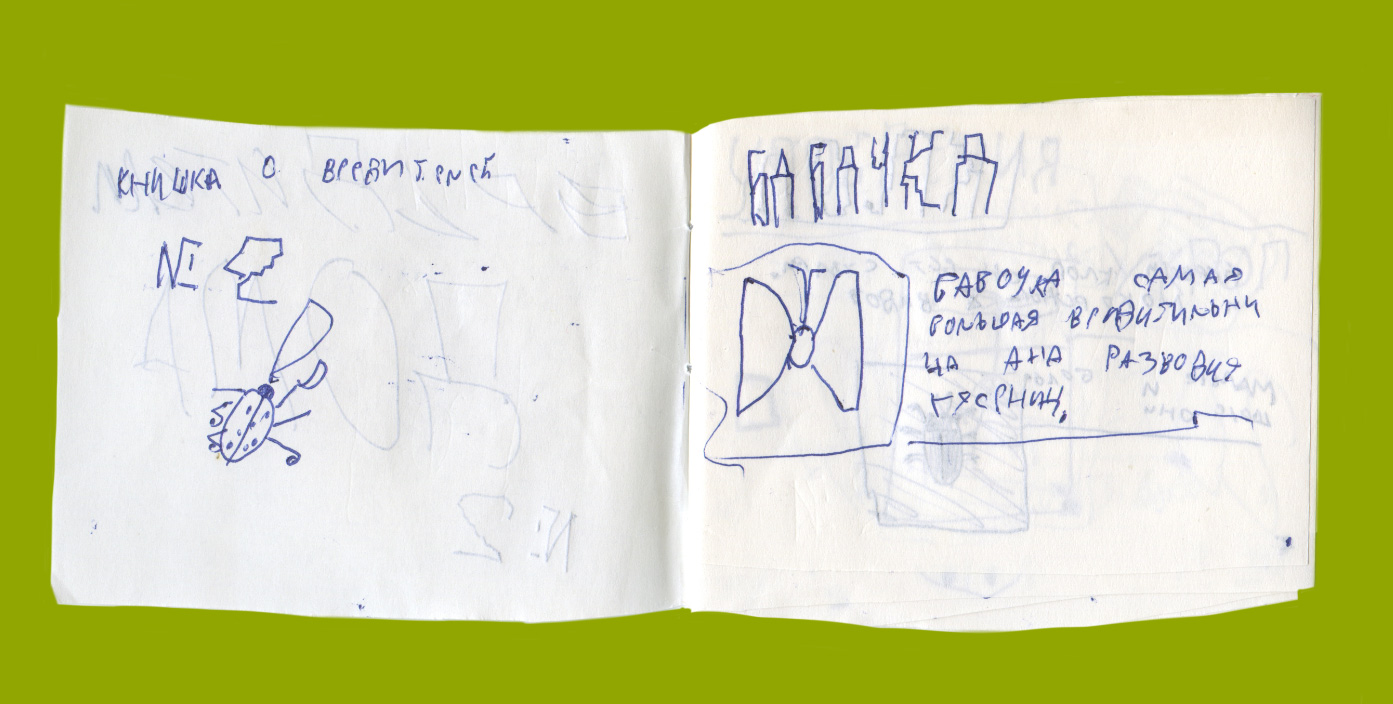 КНИШКА О ВРЕДИТЕЛЕЙ
№ 2
БАБАЧКА
БАБОЧКА САМАЯ
БОЛЬШАЯ ВРЕДИТИЛЬНИ
ЦА АНА РАЗВОДИТ
ГУСЕНИЦ.